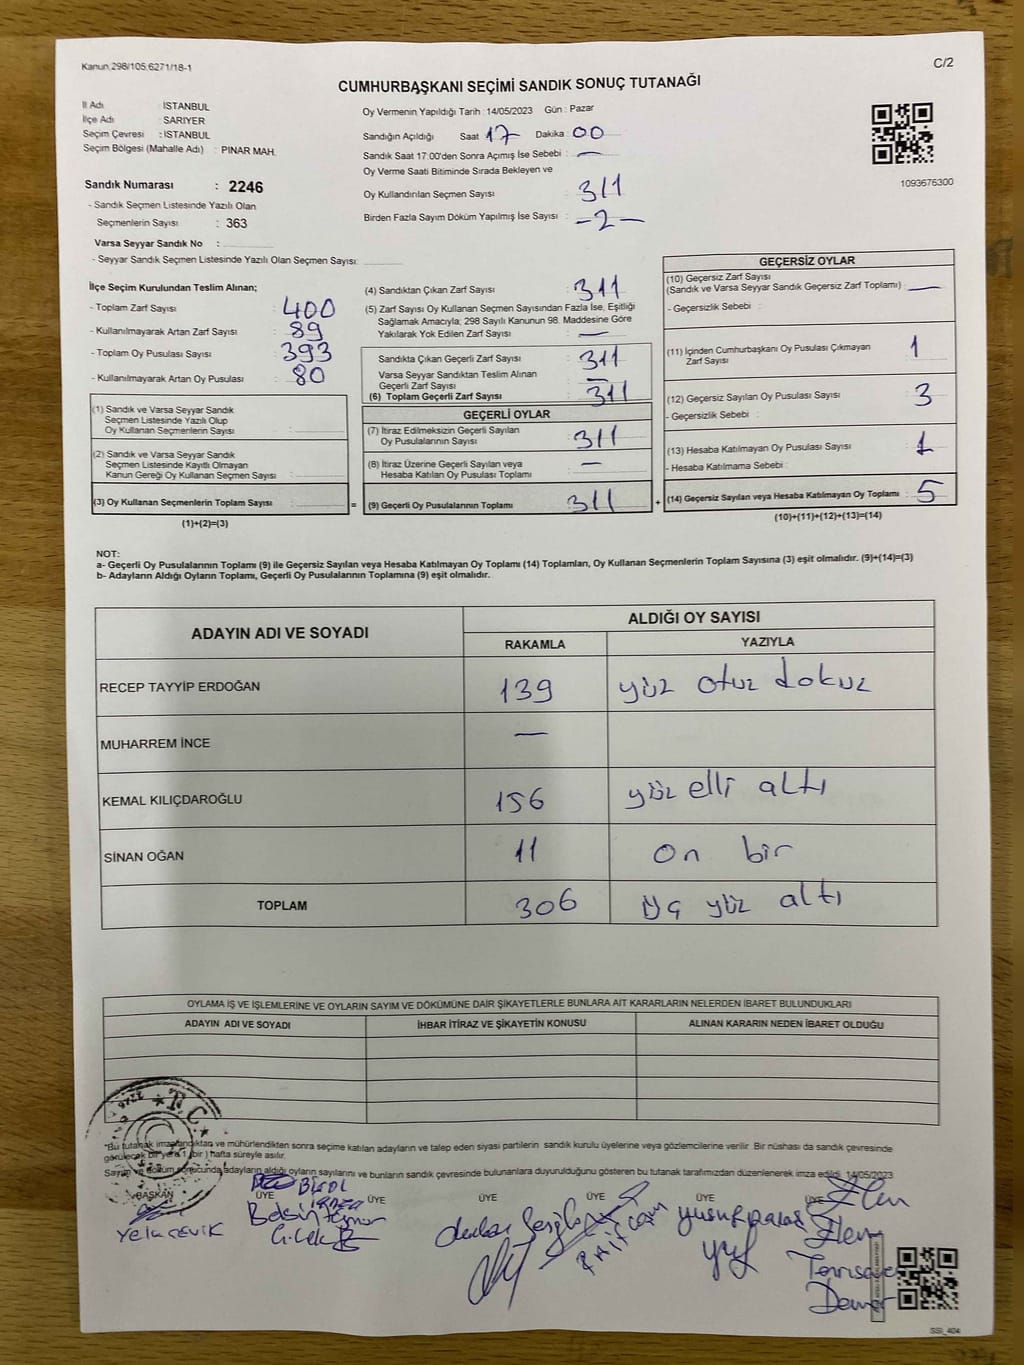 Kanun.298/105,6271/18-1
C/2
CUMHURBAŞKANI SEÇİMİ SANDIK SONUÇ TUTANAĞI
İl Adı : İSTANBUL
İlçe Adı : SARIYER
Seçim Çevresi : İSTANBUL
Seçim Bölgesi (Mahalle Adı) : PINAR MAH.
Sandık Numarası : 2246
- Sandık Seçmen Listesinde Yazılı Olan
Seçmenlerin Sayısı : 363
Varsa Seyyar Sandık No :
- Seyyar Sandık Seçmen Listesinde Yazılı Olan Seçmen Sayısı:
Oy Vermenin Yapıldığı Tarih : 14/05/2023 Gün : Pazar
Sandığın Açıldığı Saat 17 Dakika : 00
Sandık Saat 17:00'den Sonra Açımış İse Sebebi : —
Oy Verme Saati Bitiminde Sırada Bekleyen ve
Oy Kullandırılan Seçmen Sayısı : 311
Birden Fazla Sayım Döküm Yapılmış İse Sayısı : -2-
1093676300
İlçe Seçim Kurulundan Teslim Alınan;
- Toplam Zarf Sayısı : 400
- Kullanılmayarak Artan Zarf Sayısı : 89
- Toplam Oy Pusulası Sayısı : 393
- Kullanılmayarak Artan Oy Pusulası : 80
(1) Sandık ve Varsa Seyyar Sandık
Seçmen Listesinde Yazılı Olup
Oy Kullanan Seçmenlerin Sayısı :
(2) Sandık ve Varsa Seyyar Sandık
Seçmen Listesinde Kayıtlı Olmayan
Kanun Gereği Oy Kullanan Seçmen Sayısı :
(3) Oy Kullanan Seçmenlerin Toplam Sayısı : =
(1)+(2)=(3)
(4) Sandıktan Çıkan Zarf Sayısı : 311
(5) Zarf Sayısı Oy Kullanan Seçmen Sayısından Fazla İse, Eşitliği
Sağlamak Amacıyla; 298 Sayılı Kanunun 98. Maddesine Göre
Yakılarak Yok Edilen Zarf Sayısı : —
Sandıkta Çıkan Geçerli Zarf Sayısı : 311
Varsa Seyyar Sandıktan Teslim Alınan
Geçerli Zarf Sayısı : —
(6) Toplam Geçerli Zarf Sayısı : 311
GEÇERLİ OYLAR
(7) İtiraz Edilmeksizin Geçerli Sayılan
Oy Pusulalarının Sayısı : 311
(8) İtiraz Üzerine Geçerli Sayılan veya
Hesaba Katılan Oy Pusulası Toplamı : —
(9) Geçerli Oy Pusulalarının Toplamı : 311 +
GEÇERSİZ OYLAR
(10) Geçersiz Zarf Sayısı
(Sandık ve Varsa Seyyar Sandık Geçersiz Zarf Toplamı) : —
- Geçersizlik Sebebi :
(11) İçinden Cumhurbaşkanı Oy Pusulası Çıkmayan
Zarf Sayısı : 1
(12) Geçersiz Sayılan Oy Pusulası Sayısı : 3
- Geçersizlik Sebebi :
(13) Hesaba Katılmayan Oy Pusulası Sayısı : 1
- Hesaba Katılmama Sebebi :
(14) Geçersiz Sayılan veya Hesaba Katılmayan Oy Toplamı : 5
(10)+(11)+(12)+(13)=(14)
NOT:
a- Geçerli Oy Pusulalarının Toplamı (9) ile Geçersiz Sayılan veya Hesaba Katılmayan Oy Toplamı (14) Toplamları, Oy Kullanan Seçmenlerin Toplam Sayısına (3) eşit olmalıdır. (9)+(14)=(3)
b- Adayların Aldığı Oyların Toplamı, Geçerli Oy Pusulalarının Toplamına (9) eşit olmalıdır.
ADAYIN ADI VE SOYADI
ALDIĞI OY SAYISI
RAKAMLA YAZIYLA
RECEP TAYYİP ERDOĞAN 139 yüz otuz dokuz
MUHARREM İNCE —
KEMAL KILIÇDAROĞLU 156 yüz elli altı
SİNAN OĞAN 11 on bir
TOPLAM 306 üç yüz altı
OYLAMA İŞ VE İŞLEMLERİNE VE OYLARIN SAYIM VE DÖKÜMÜNE DAİR ŞİKAYETLERLE BUNLARA AİT KARARLARIN NELERDEN İBARET BULUNDUKLARI
ADAYIN ADI VE SOYADI İHBAR İTİRAZ VE ŞİKAYETİN KONUSU ALINAN KARARIN NEDEN İBARET OLDUĞU
T.C.
*Bu tutanak imzalandıktan ve mühürlendikten sonra seçime katılan adayların ve talep eden siyasi partilerin sandık kurulu üyelerine veya gözlemcilerine verilir. Bir nüshası da sandık çevresinde
görülecek bir yere 1 (bir) hafta süreyle asılır.
Sayım ve döküm sonucunda adayların aldığı oyların sayılarını ve bunların sandık çevresinde bulunanlara duyurulduğunu gösteren bu tutanak tarafımızdan düzenlenerek imza edildi. 14/05/2023
BAŞKAN ÜYE ÜYE ÜYE ÜYE ÜYE ÜYE
BİROL
Yeliz ÇEVİK
SSI_404